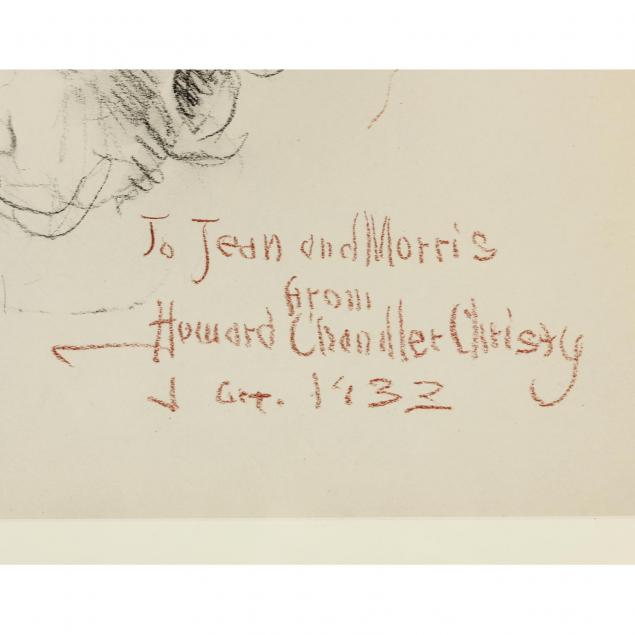 To Jean and Morris
from
Howard Chandler Christy
1932